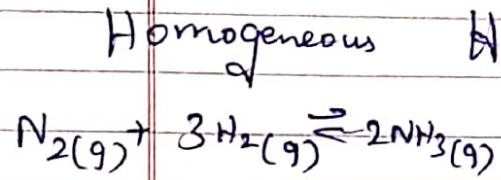 Homogeneous H
N₂(g) + 3H₂(g) ⇌ 2NH₃(g)